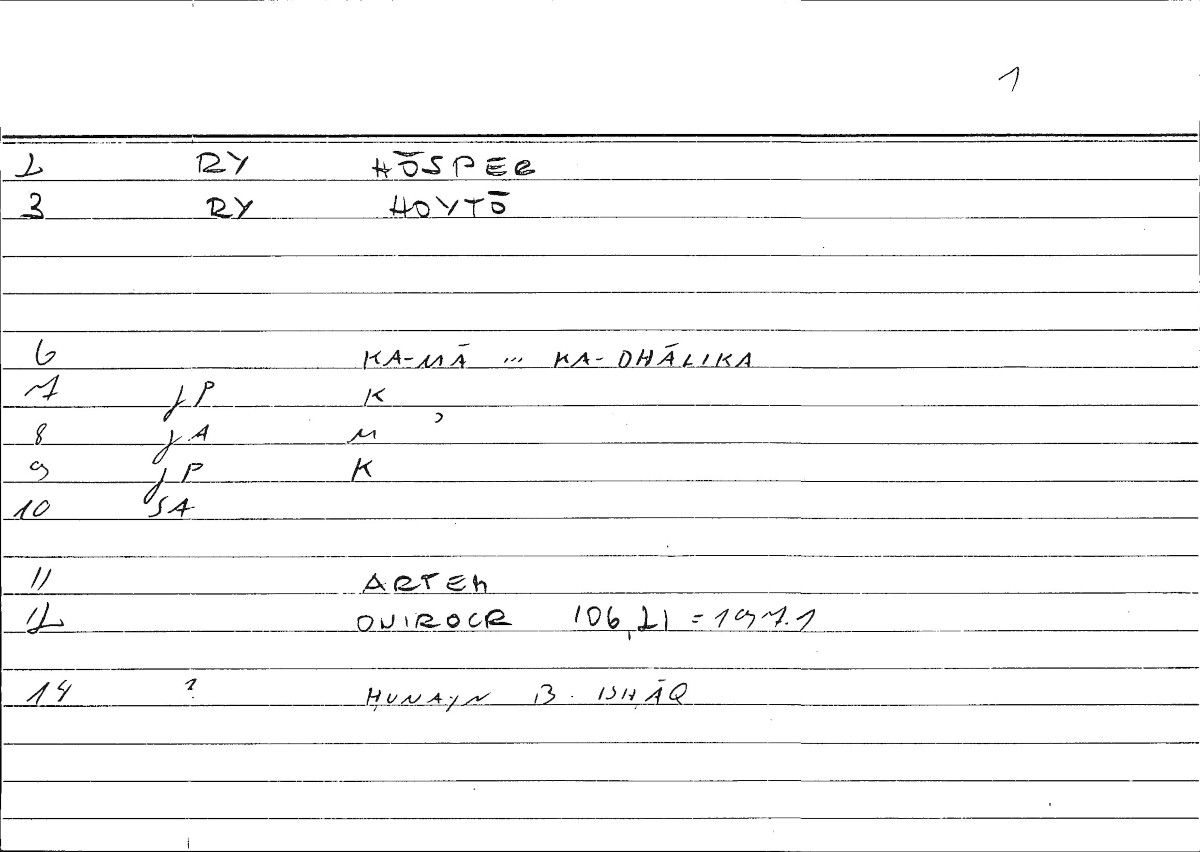 1
2 RY HŌSPER
3 RY HOYTŌ
6 KA-MĀ ... KA-DHĀLIKA
7 jP K
8 jA M ʾ
9 jP K
10 SA
11 ARTEM
12 ONIROCR 106,21 = 197.1
14 ? ḤUNAYN B. ISḤĀQ